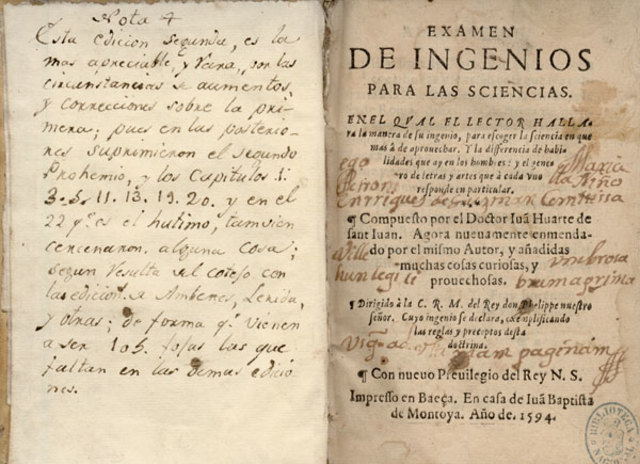 Nota 4
Esta edicion segunda, es la
mas apreciable, y Rara, por las
circunstancias de aumentos,
y correcciones sobre la pri-
mera; pues en las posterio-
res suprimieron el segundo
Prohemio, y los Capitulos 1.
3. 5. 11. 13. 19. 20. y en el
22 q.e es el hultimo, tamvien
cercenaron alguna cosa;
segun Resulta del cotejo con
las edicion. de Amberes, Lexida,
y otras; de forma q.e vienen
a ser 105. fojas las que
faltan en las demas edicio
nes.
EXAMEN
DE INGENIOS
PARA LAS SCIENCIAS.
EN EL QVAL EL LECTOR HALLA-
ra la manera de su ingenio, para escoger la sciencia en que
mas à de aprouechar. Y la differencia de habi-
lidades que ay en los hombres: y el gene-
ro de letras y artes que à cada vno
responde en particular.
ego Maria
Enrriques de guzman
¶ Compuesto por el Doctor Iuã Huarte de
sant Iuan. Agora nueuamente enmenda-
do por el mismo Autor, y añadidas
muchas cosas curiosas, y
prouechosas.
¶ Dirigido à la C. R. M. del Rey don Phelippe nuestro
señor. Cuyo ingenio se declara, exemplificando
las reglas y preceptos desta
doctrina.
paginam
¶ Con nueuo Preuilegio del Rey N. S.
Impresso en Baeça. En casa de Iuã Baptista
de Montoya. Año de 1594.
BIBLIOTECA